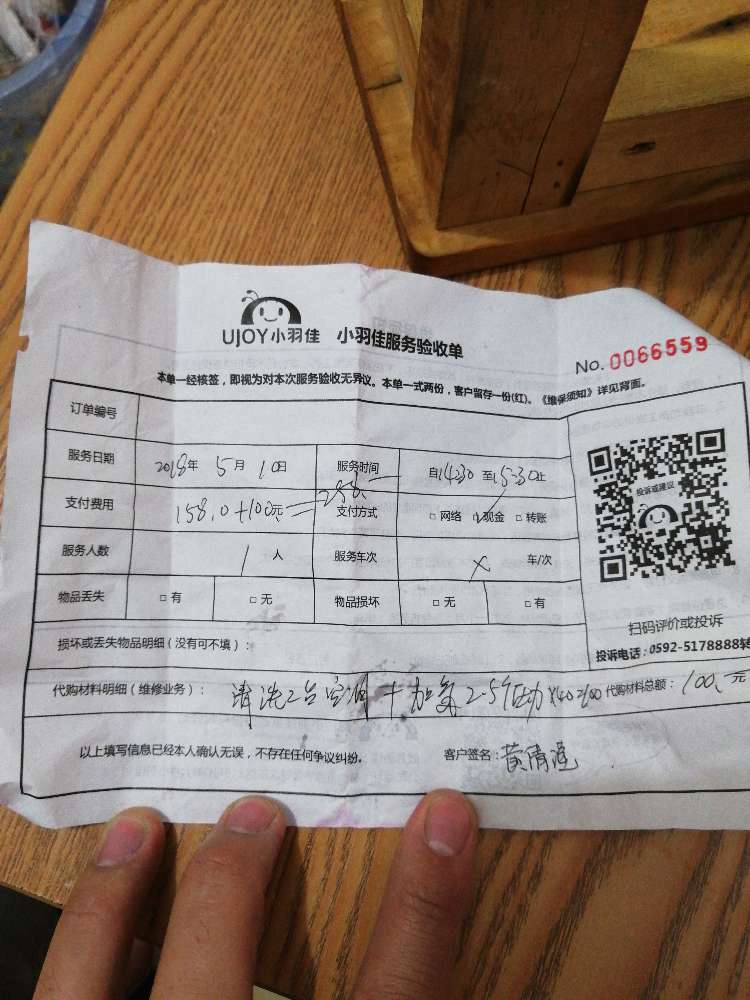 UJOY小羽佳 小羽佳服务验收单
No. 0066559
本单一经核签，即视为对本次服务验收无异议。本单一式两份，客户留存一份(红)。《维保须知》详见背面。
订单编号
服务日期 2018年 5月 10日 服务时间 自14:30 至15:30止
支付费用 158.0+100元=258. 支付方式 □网络 ☑现金 □转账
服务人数 1 人 服务车次 × 车/次
物品丢失 □有 □无 物品损坏 □无 □有
损坏或丢失物品明细（没有可不填）：
代购材料明细（维修业务）： 清洗2台空调 + 加氟 2.5个压力 ×40=100 代购材料总额： 100. 元
以上填写信息已经本人确认无误，不存在任何争议纠纷。 客户签名：黄清
投诉或建议
扫码评价或投诉
投诉电话：0592-5178888转